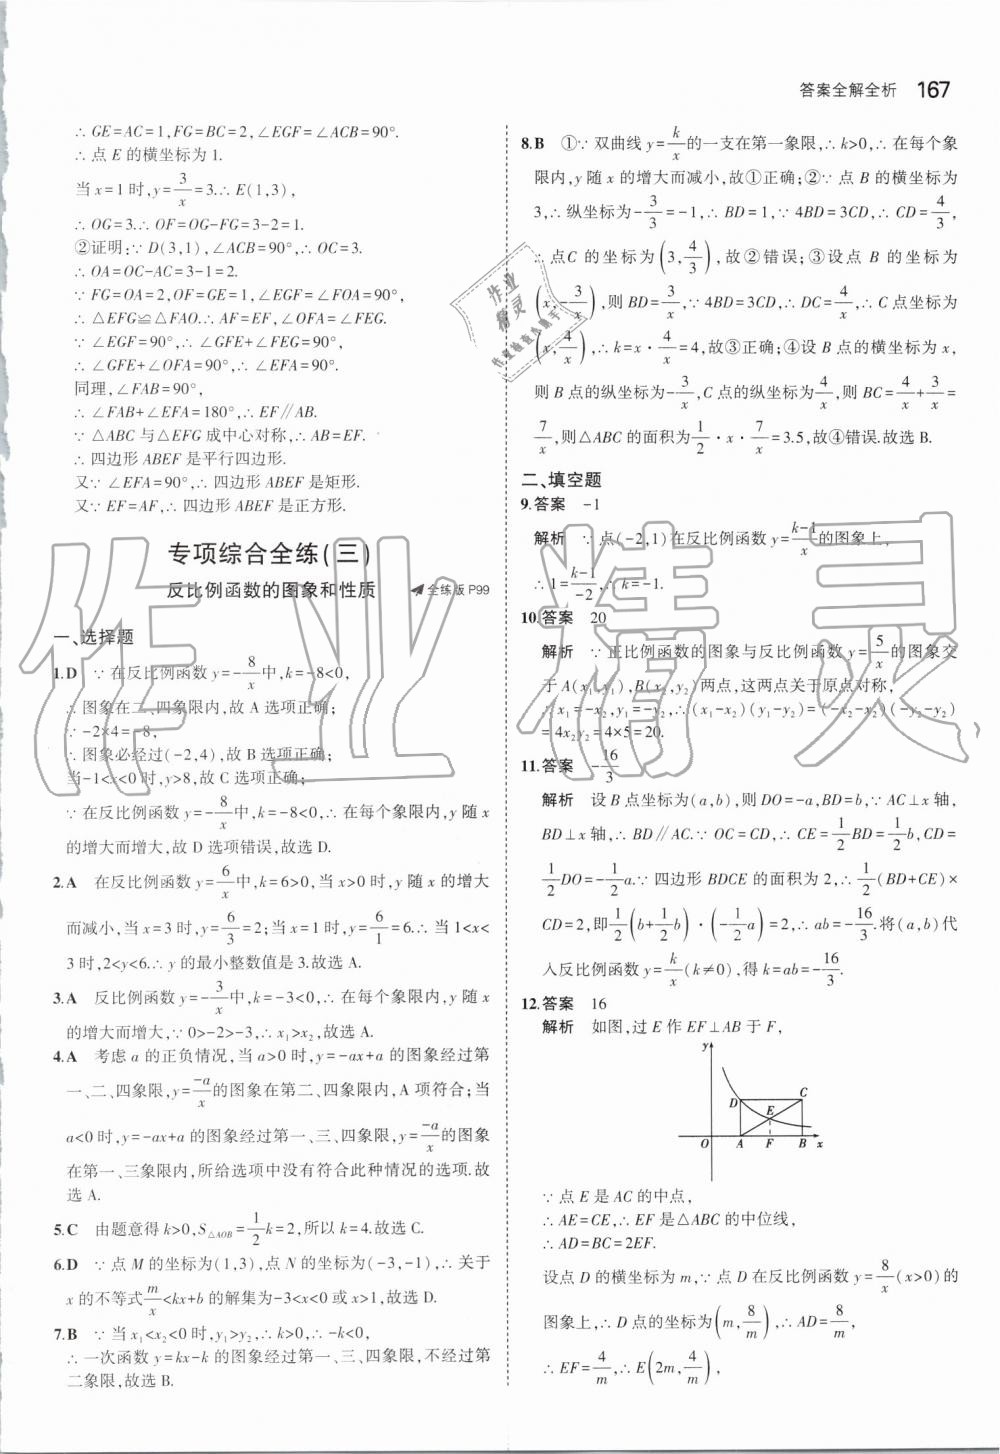 答案全解全析 167
∴ GE=AC=1,FG=BC=2,∠EGF=∠ACB=90°.
∴ 点 E 的横坐标为 1.
当 x=1 时,y=3/x=3.∴ E(1,3),
∴ OG=3.∴ OF=OG-FG=3-2=1.
②证明:∵ D(3,1),∠ACB=90°,∴ OC=3.
∴ OA=OC-AC=3-1=2.
∵ FG=OA=2,OF=GE=1,∠EGF=∠FOA=90°,
∴ △EFG≌△FAO.∴ AF=EF,∠OFA=∠GEF.
∵ ∠EGF=90°,∴ ∠GFE+∠GEF=90°,
∴ ∠GFE+∠OFA=90°,∴ ∠EFA=90°.
同理,∠FAB=90°,
∴ ∠FAB+∠EFA=180°,∴ EF∥AB.
∵ △ABC 与△EFG 成中心对称,∴ AB=EF.
∴ 四边形 ABEF 是平行四边形.
又∵ ∠EFA=90°,∴ 四边形 ABEF 是矩形.
又∵ EF=AF,∴ 四边形 ABEF 是正方形.
专项综合全练(三)
反比例函数的图象和性质 全练版 P99
一、选择题
1.D ∵ 在反比例函数 y=-8/x中,k=-8<0,
∴ 图象在二、四象限内,故 A 选项正确;
∵ -2×4=-8,
∴ 图象必经过(-2,4),故 B 选项正确;
当-1<x<0 时,y>8,故 C 选项正确;
∵ 在反比例函数 y=-8/x中,k=-8<0,∴ 在每个象限内,y 随 x
的增大而增大,故 D 选项错误,故选 D.
2.A 在反比例函数 y=6/x中,k=6>0,当 x>0 时,y 随 x 的增大
而减小,当 x=3 时,y=6/3=2;当 x=1 时,y=6/1=6.∴ 当 1<x<
3 时,2<y<6.∴ y 的最小整数值是 3.故选 A.
3.A 反比例函数 y=-3/x中,k=-3<0,∴ 在每个象限内,y 随 x
的增大而增大,∵ 0>-2>-3,∴ x₁>x₂,故选 A.
4.A 考虑 a 的正负情况,当 a>0 时,y=-ax+a 的图象经过第
一、二、四象限,y=-a/x的图象在第二、四象限,A 项符合;当
a<0 时,y=-ax+a 的图象经过第一、三、四象限,y=-a/x的图象
在第一、三象限内,所给选项中没有符合此种情况的选项.故
选 A.
5.C 由题意得 k>0,S△AOB=1/2k=2,所以 k=4.故选 C.
6.D ∵ 点 M 的坐标为(1,3),点 N 的坐标为(-3,-1),∴ 关于
x 的不等式m/x<kx+b 的解集为-3<x<0 或 x>1,故选 D.
7.B ∵ 当 x₁<x₂<0 时,y₁>y₂,∴ k>0,∴ -k<0,
∴ 一次函数 y=kx-k 的图象经过第一、三、四象限,不经过第
二象限,故选 B.
8.B ①∵ 双曲线 y=k/x的一支在第一象限,∴ k>0,∴ 在每个象
限内,y 随 x 的增大而减小,故①正确;②∵ 点 B 的横坐标为
3,∴ 纵坐标为-3/3=-1,∴ BD=1,∵ 4BD=3CD,∴ CD=4/3,
∴ 点C 的坐标为(3,4/3),故②错误;③设点 B 的坐标为
(x,-3/x),则 BD=3/x,∵ 4BD=3CD,∴ DC=4/x,∴ C 点坐标为
(x,4/x),∴ k=x·4/x=4,故③正确;④设 B 点的横坐标为 x,
则 B 点的纵坐标为-3/x,C 点的纵坐标为4/x,则 BC=4/x+3/x=
7/x,则△ABC 的面积为1/2·x·7/x=3.5,故④错误.故选 B.
二、填空题
9.答案 -1
解析 ∵ 点(-2,1)在反比例函数 y=k-1/x的图象上,
∴ 1=k-1/-2,∴ k=-1.
10.答案 20
解析 ∵ 正比例函数的图象与反比例函数 y=5/x的图象交
于 A(x₁,y₁),B(x₂,y₂)两点,这两点关于原点对称,
∴ x₁=-x₂,y₁=-y₂,∴ (x₁-x₂)(y₁-y₂)=(-x₂-x₂)(-y₂-y₂)
=4x₂y₂=4×5=20.
11.答案 -16/3
解析 设 B 点坐标为(a,b),则 DO=-a,BD=b,∵ AC⊥x 轴,
BD⊥x 轴,∴ BD∥AC.∵ OC=CD,∴ CE=1/2BD=1/2b,CD=
1/2DO=-1/2a.∵ 四边形 BDCE 的面积为 2,∴ 1/2(BD+CE)×
CD=2,即1/2(b+1/2b)·(-1/2a)=2,∴ ab=-16/3.将(a,b)代
入反比例函数 y=k/x(k≠0),得 k=ab=-16/3.
12.答案 16
解析 如图,过 E 作 EF⊥AB 于 F,
y
D C
E
O A F B x
∵ 点 E 是 AC 的中点,
∴ AE=CE,∴ EF 是△ABC 的中位线,
∴ AD=BC=2EF.
设点 D 的横坐标为 m,∵ 点 D 在反比例函数 y=8/x(x>0)的
图象上,∴ D 点的坐标为(m,8/m),∴ AD=8/m,
∴ EF=4/m,∴ E(2m,4/m),
作业精灵